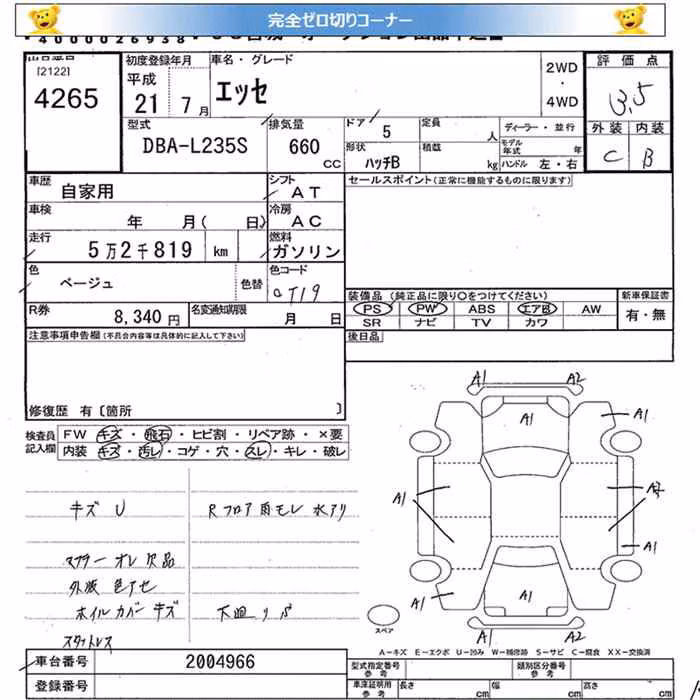 完全ゼロ切りコーナー
[2122]
4265
初度登録年月
平成
21 7 月
車名・グレード
エッセ
2WD
・
4WD
評価点
3.5
外装 内装
C B
型式
DBA-L235S
排気量
660
CC
ドア 5
形状
ハッチB
定員 人
積載 kg
ディーラー・並行
モデル年式
ハンドル 左・右
車歴
自家用
シフト
AT
セールスポイント(正常に機能するものに限ります)
車検
年 月( 日)
冷房
AC
走行
5万2千819 km
燃料
ガソリン
色
ベージュ
色替
色コード
T19
装備品(純正品に限り○をつけてください)
PS PW ABS エアB AW
SR ナビ TV カワ
新車保証書
有・無
R券
8,340 円
名変通知期限
月 日
注意事項申告欄(不具合内容等は具体的に記入して下さい)
後日品
修復歴 有〔箇所 〕
検査員
記入欄
FW キズ・飛石・ヒビ割・リペア跡・×要
内装 キズ・汚レ・コゲ・穴・スレ・キレ・破レ
キズ U
Rフロア雨モレ 水アリ
マフラーオレ欠品
外板 色アセ
ホイルカバーキズ
下廻り
スタットレス
A1 A2
A1
A1
A1
A1
A1
A1
A1
A1 A2
スペア
A−キズ E−エクボ U−凹み W−補修跡 S−サビ C−腐食 XX−交換済
車台番号
2004966
登録番号
型式指定番号
参考
類別区分番号
参考
車庫証明用
参考
長さ cm
幅 cm
高さ cm